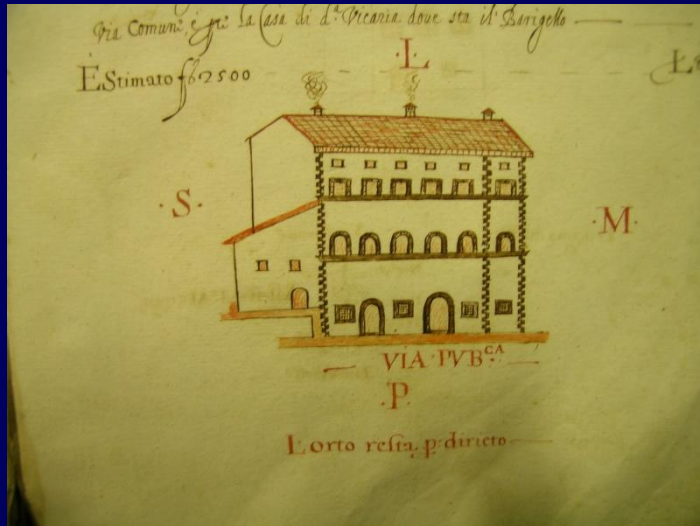 Via Comun: è pr: la Casa di d.ª Vicaria doue sta il Barigello
·L·
EStimato fb 2500
·S·
·M·
VIA·PVB:CA
·P·
L orto resta p: dirieto